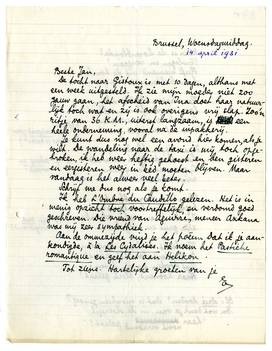 Brussel, Woensdagmiddag.
14 april 1931
Beste Jan,
De tocht naar Gistoux is met 10 dagen, althans met
een week uitgesteld. Ik zie mijn moeder niet zoo
gauw gaan, het afscheid van Ina doet haar natuur-
lijk toch wat en zij is ook overigens vrij slap. Zoo'n
ritje van 36 K.M., uiterst langzaam, is een
heele onderneming, vooral na de inpakkerij.
Je kunt dus nog met een avond hier komen, als je
wilt. De wandeling naar de taxi is mij toch opge-
broken, ik heb weer heftig gehoest en ben gisteren
en eergisteren weer in bed moeten blijven. Maar
vandaag is het alweer veel beter.
Schrijf me dus nog als je komt.
Ik heb L'Ombre du gelezen. Het is in
menig opzicht toch voortreffelijk, en verdomd goed
geschreven. Die vriend van Aguirre, meneer
was mij zeer sympathiek.
Aan de ommezijde vind je het poëem dat ik je aan-
kondigde, à la Les Cydalises. Ik noem het Pastiche
romantique en geef het aan Helikon.
Tot ziens. Hartelijke groeten van je
E